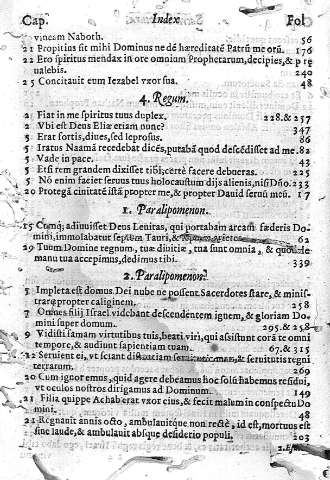 Cap. Index Fol.
vineam Naboth. 56
21 Propitius sit mihi Dominus ne dé hæreditaté Patrũ me orũ. 176
22 Ero spiritus mendax in ore omnium Prophetarum, decipies, & præ
ualebis. 240
25 Concitauit eum Iezabel vxor sua. 48
4. Regum.
2 Fiat in me spiritus tuus duplex. 228. & 257
2 Vbi est Deus Eliæ etiam nonc? 347
5 Erat fortis, diues, sed leprosus. 86
5 Iratus Naamã recedebat dicẽs, putabã quod descẽdisset ad me. 82
5 Vade in pace. 43
5 Etsi rem grandem dixisset tibi, certè facere debueras. 225
5 Nõ enim faciet seruus tuus holocaustum dijs alienis, nisi Dño. 233
20 Protegã ciuitatẽ istã propter me, & propter Dauid seruũ meũ. 17
1. Paralipomenon.
15 Cumq; adiuuisset Deus Leuitas, qui portabam arcam fæderis Do-
mini, immolabatur septem Tauri, & 62
29 Tuum Domine regnum, tuæ diuitiæ, tua sunt omnia, & quod de
manu tua accepimus, dedimus tibi. 339
2. Paralipomenon.
5 Impleta est domus Dei nube ne possent Sacerdotes stare, & minis-
trare propter caliginem. 258
7 Omnes filij Israel videbant descendentem ignem, & gloriam Do
mini super domum. 295. & 258
9 Vidisti famam virtutibus tuis, beati viri, qui assistunt corã te omni
tempore, & audiunt sapientiam tuam. 67. & 315
12 Seruient ei, vt sciant distantiam seruitutis meæ, & seruitutis regni
terrarum. 269
20 Cum ignoremus, quid agere debeamus hoc solũ habemus residui,
vt oculos nostros dirigamus ad Dominum. 149
21 Filia quippe Achab erat vxor eius, & fecit malum in conspectu Do
mini. 48
21 Regnauit annis octo, ambulauitque non rectè, id est, mortuus est
sine laude, & ambulauit absque desiderio populi. 103